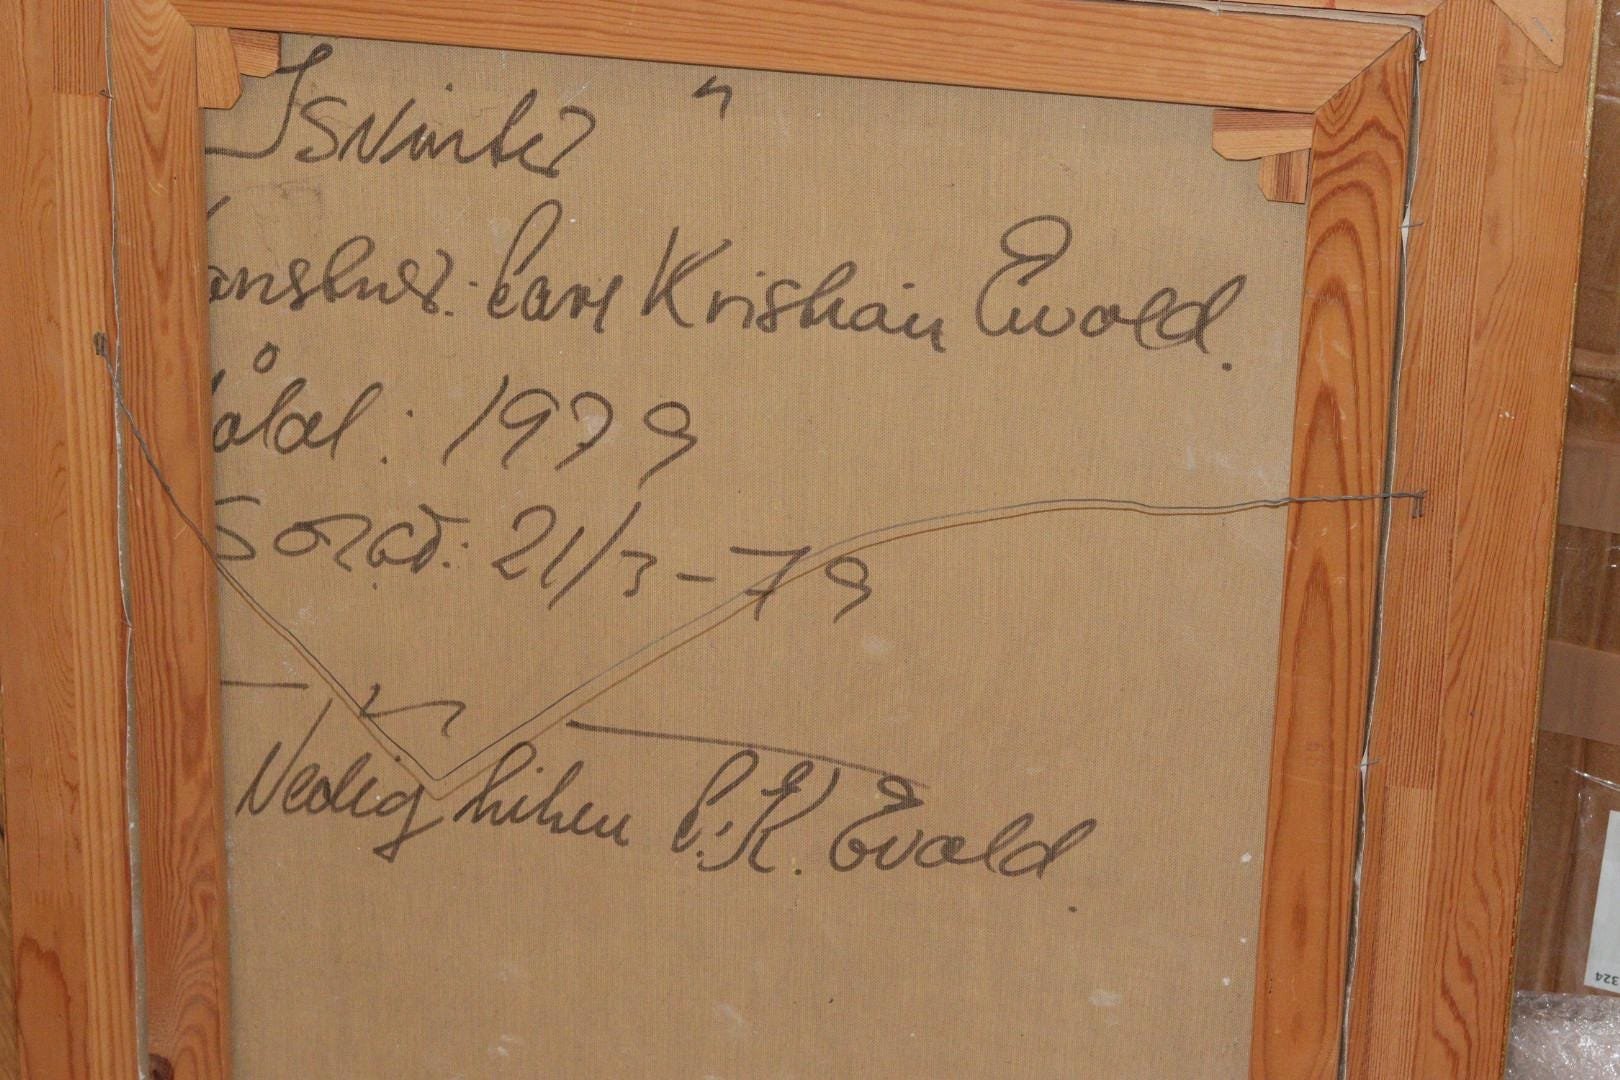 Isvinter"
Konstner: Carl Kristian Ewald.
Målad: 1979
Såld: 21/3-79
Vedlig hilsen C.K. Ewald.
324